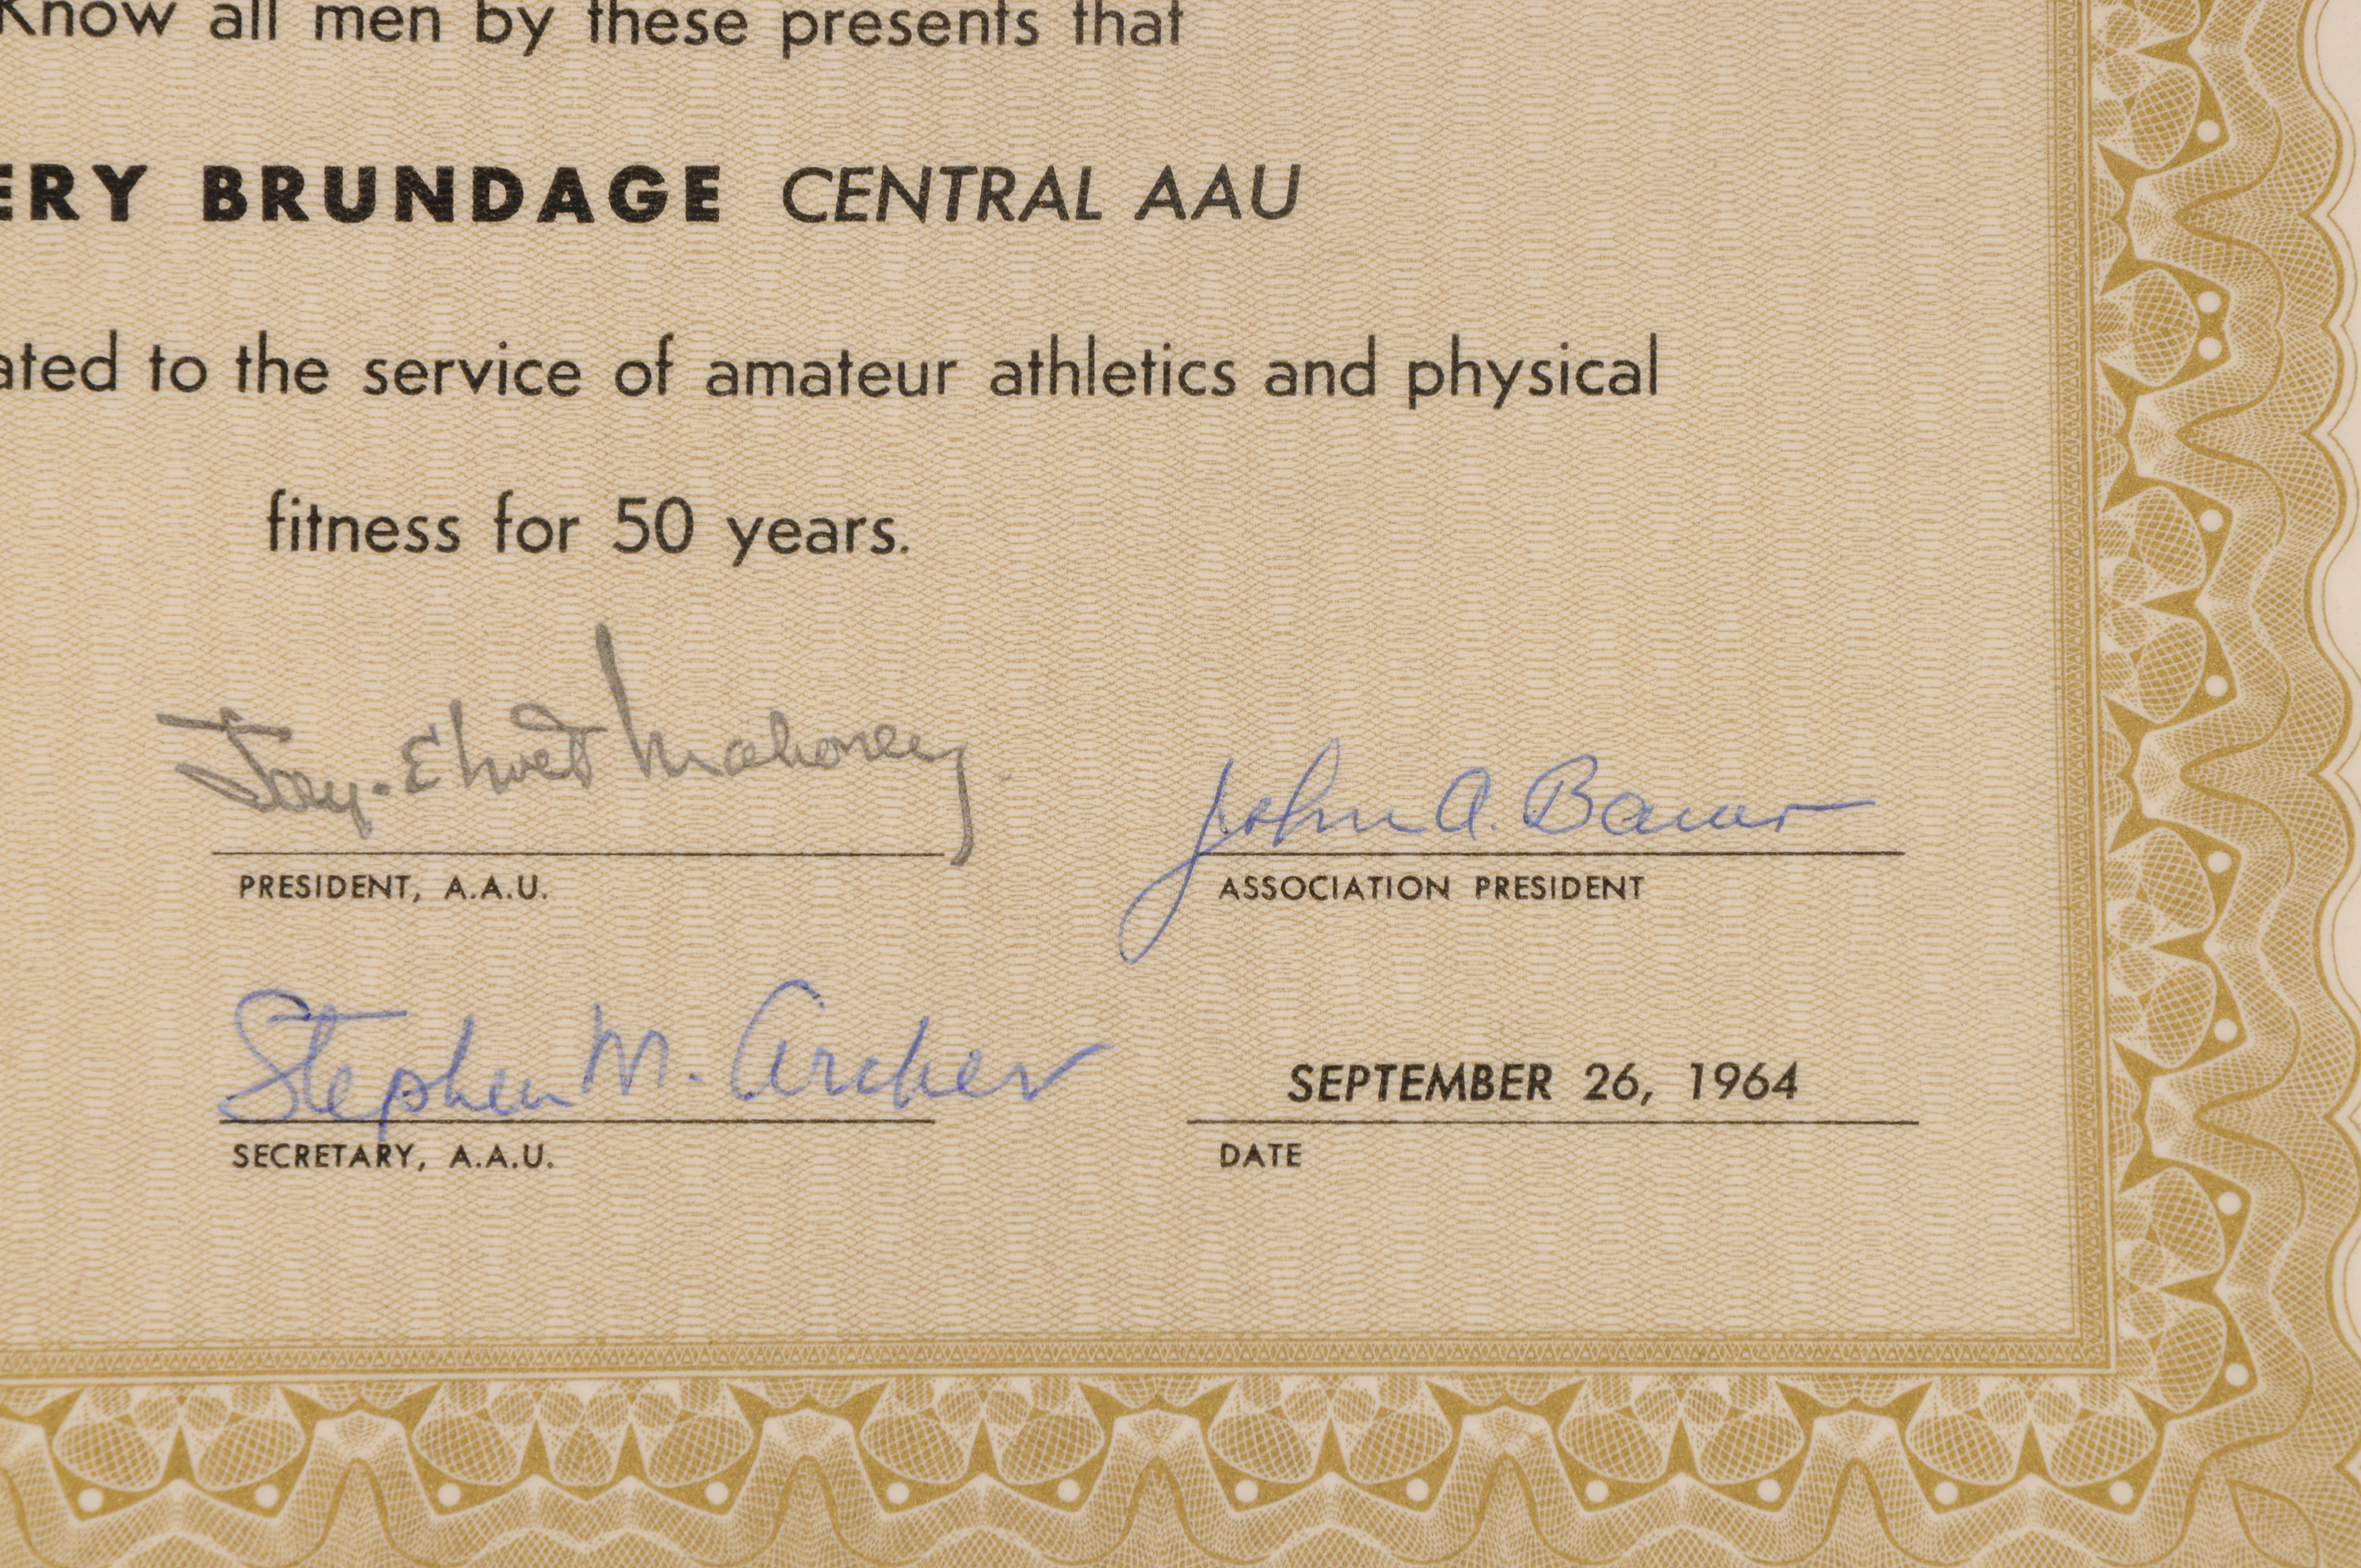 Know all men by these presents that
ERY BRUNDAGE CENTRAL AAU
ated to the service of amateur athletics and physical
fitness for 50 years.
Jay-Ehret Mahoney
PRESIDENT, A.A.U.
John A. Bauer
ASSOCIATION PRESIDENT
Stephen M. Archer
SECRETARY, A.A.U.
SEPTEMBER 26, 1964
DATE